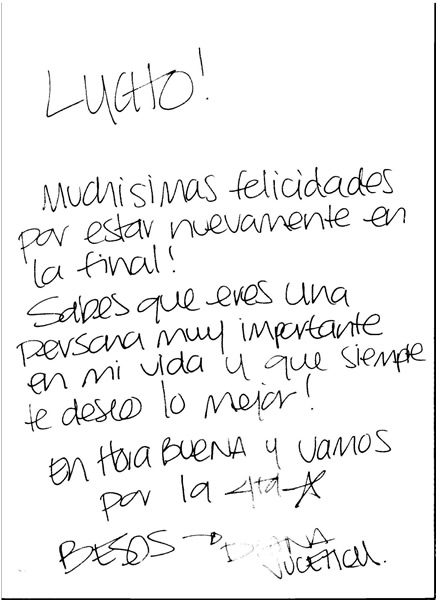 LUCHO!
Muchisimas felicidades
por estar nuevamente en
la final!
Sabes que eres una
persona muy importante
en mi vida y que siempre
te deseo lo mejor!
En Hora BUENA y vamos
por la 4ta ☆
BESOS → DIANA
VUCETICH.